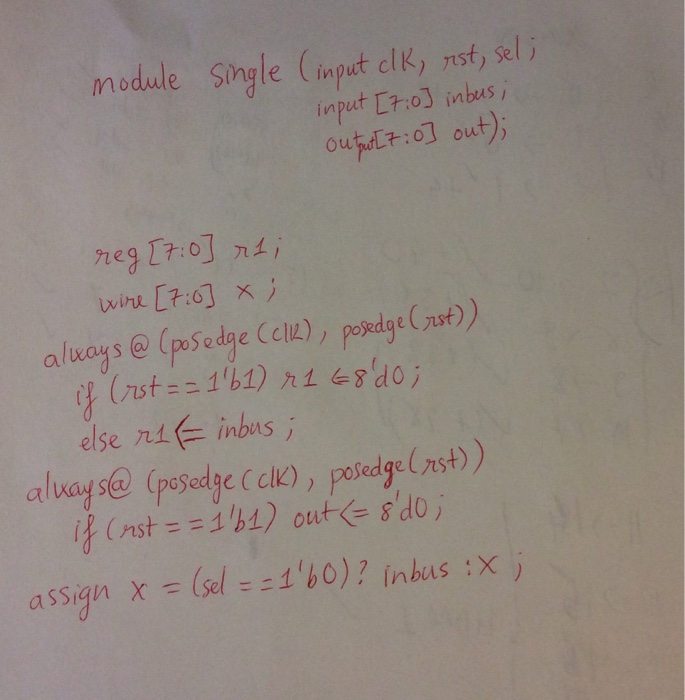 module Single (input clk, rst, sel;
input [7:0] inbus;
output[7:0] out);
reg [7:0] r1;
wire [7:0] x;
always @ (posedge (clk), posedge (rst))
if (rst == 1'b1) r1 <= 8'd0;
else r1 <= inbus;
always@ (posedge (clk), posedge(rst))
if (rst == 1'b1) out <= 8'd0;
assign x = (sel == 1'b0)? inbus : x;